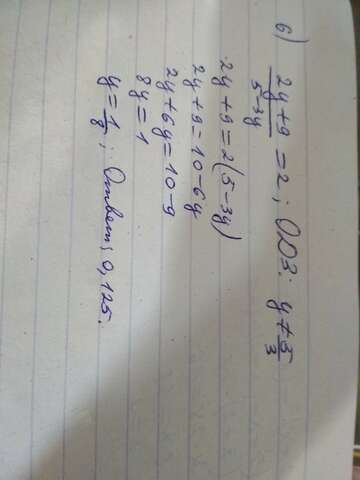 б) (2y+9)/(5-3y) = 2; ОДЗ: y ≠ 5/3
2y+9 = 2(5-3y)
2y+9 = 10-6y
2y+6y = 10-9
8y = 1
y = 1/8; Ответ: 0,125.